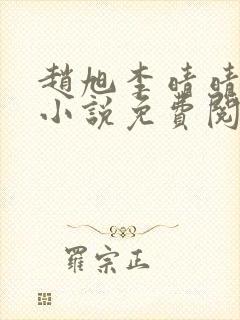 趙旭李晴晴
小說免費閱
羅宗正